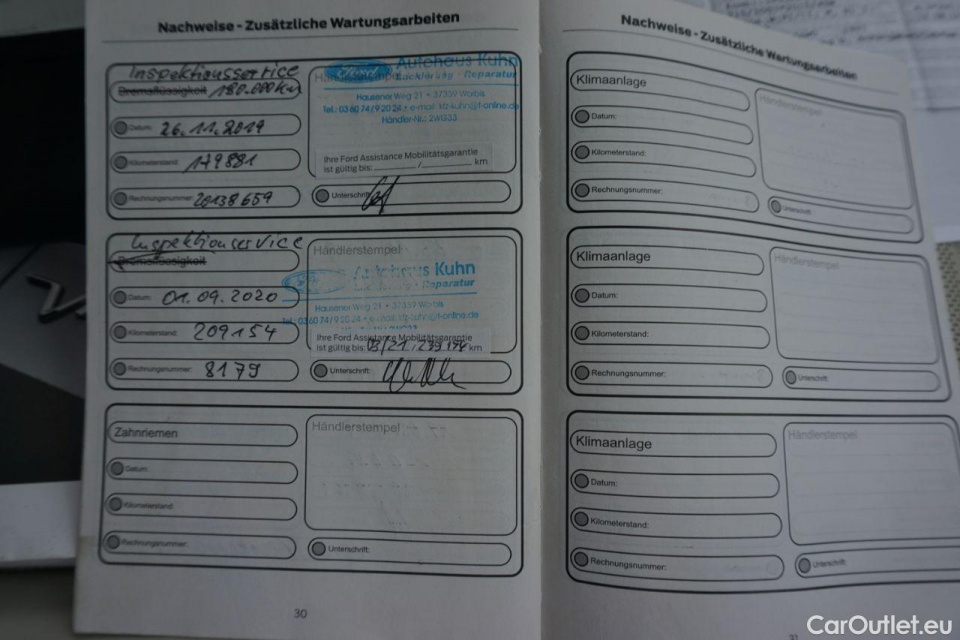 Nachweise - Zusätzliche Wartungsarbeiten
Inspektionsservice
Bremsflüssigkeit 180.000 Km
Datum: 26.11.2019
Kilometerstand: 179881
Rechnungsnummer: 20138659
Autohaus Kuhn
Lackierung · Reparatur
Hausener Weg 21 • 37339 Worbis
Tel.: 03 60 74 / 9 20 24 • e-mail: kfz-kuhn@t-online.de
Händler-Nr.: 2WG33
Ihre Ford Assistance Mobilitätsgarantie
ist gültig bis: / km
Unterschrift:
Inspektionsservice
Bremsflüssigkeit
Datum: 01.09.2020
Kilometerstand: 209154
Rechnungsnummer: 8179
Händlerstempel
Autohaus Kuhn
Reparatur
Hausener Weg 21 • 37339 Worbis
Tel.: 03 60 74 / 9 20 24 • e-mail: t-online.de
Ihre Ford Assistance Mobilitätsgarantie
ist gültig bis: km
Unterschrift:
Zahnriemen
Datum:
Kilometerstand:
Rechnungsnummer:
Händlerstempel
Unterschrift:
30
Nachweise - Zusätzliche Wartungsarbeiten
Klimaanlage
Datum:
Kilometerstand:
Rechnungsnummer:
Händlerstempel
Unterschrift:
Klimaanlage
Datum:
Kilometerstand:
Rechnungsnummer:
Händlerstempel
Unterschrift:
Klimaanlage
Datum:
Kilometerstand:
Rechnungsnummer:
Händlerstempel
Unterschrift:
31
CarOutlet.eu